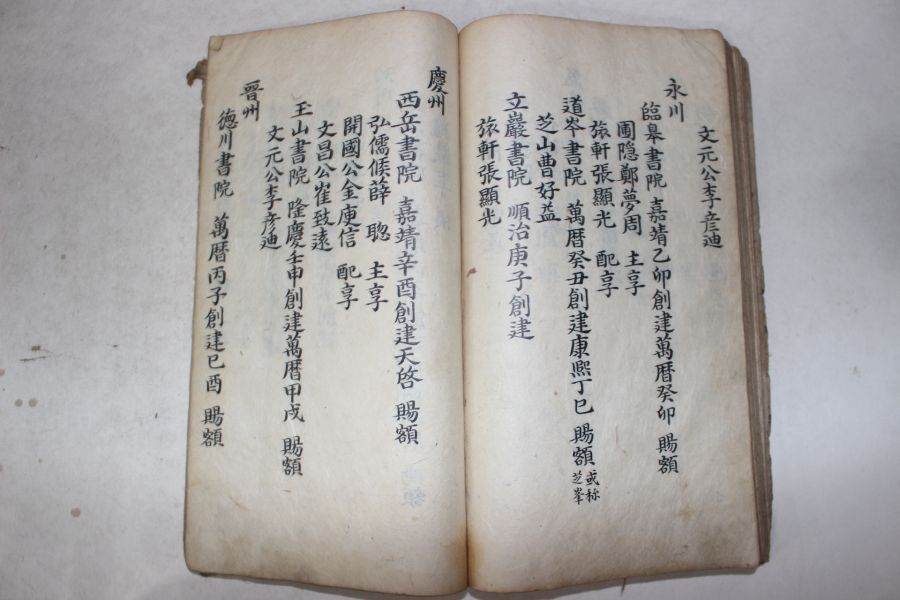 文元公李彦迪
永川
臨皋書院 嘉靖乙卯創建萬曆癸卯 賜額
圃隐鄭夢周 主享
旅軒張顯光 配享
道岑書院 萬曆癸丑創建康熙丁巳 賜額 或称芝峯
芝山曹好益
立巖書院 順治庚子創建
旅軒張顯光
慶州
西岳書院 嘉靖辛酉創建天啓 賜額
弘儒候薛聦 主享
開國公金庾信
文昌公崔致遠 配享
玉山書院 隆慶壬申創建萬曆甲戌 賜額
文元公李彦迪
晋州
徳川書院 萬曆丙子創建己酉 賜額